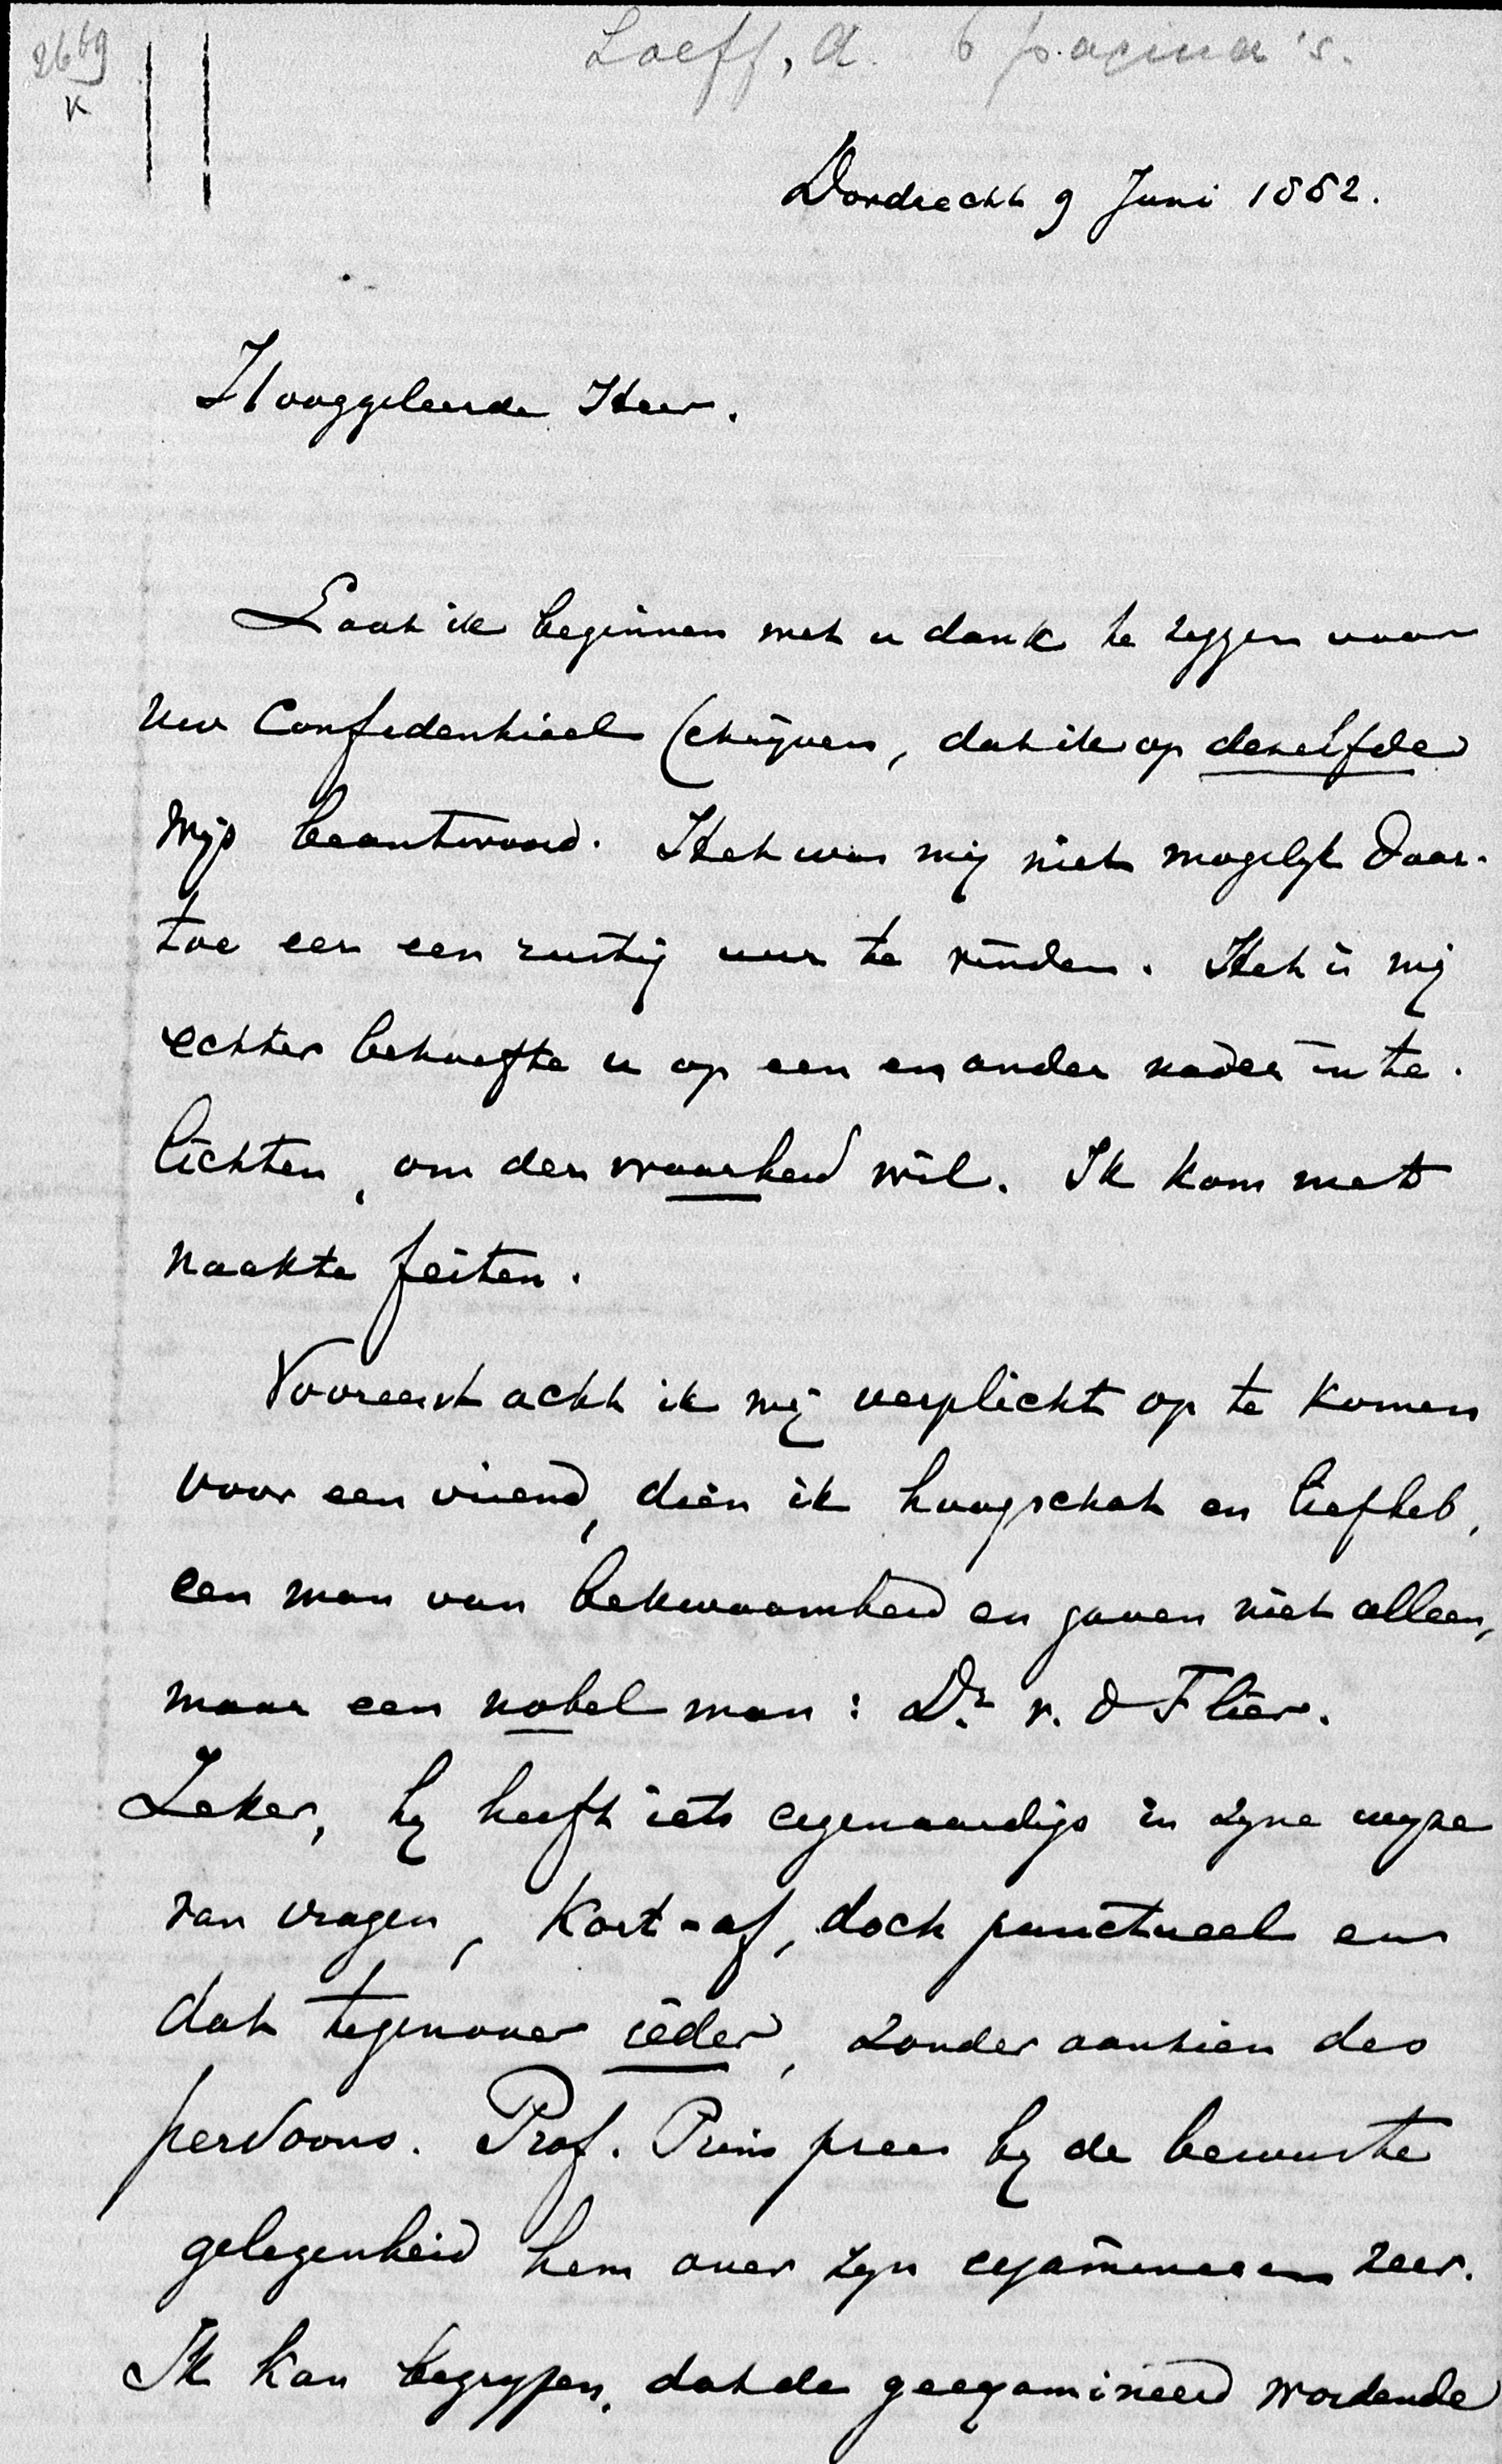 2669
K
Loeff, A. 6 pagina's.
Dordrecht 9 Juni 1882.
Hooggeleerde Heer.
Laat ik beginnen met u dank te zeggen voor
Uw Confidentieel schrijven, dat ik op dezelfde
wijs beantwoord. Het was mij niet mogelijk daar-
toe eer een rustig uur te vinden. Het is mij
echter behoefte u op een en ander nader in te
lichten, om der waarheid wil. Ik kom met
naakte feiten.
Vooreerst acht ik mij verplicht op te komen
voor een vriend, dien ik hoogschat en liefheb,
een man van bekwaamheid en gaven niet alleen,
maar een nobel man: Dr. v. d Flier.
Zeker, hij heeft iets eigenaardigs in zijne wijze
van vragen, kort-af, doch punctueel en
dat tegenover ieder, zonder aanzien des
persoons. Prof. Prins prees bij de bewuste
gelegenheid hem over zijn examineeren zeer.
Ik kan begrijpen, dat de geexamineerd wordende